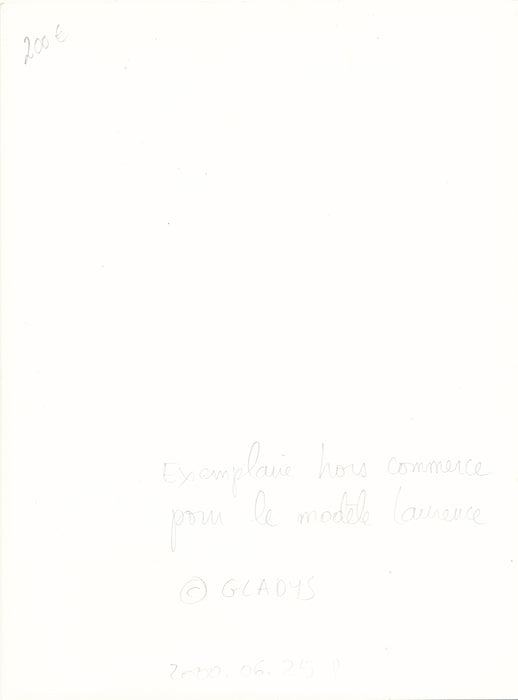 200 €
Exemplaire hors commerce
pour le modèle Laurence
© GLADYS
2000. 06. 25